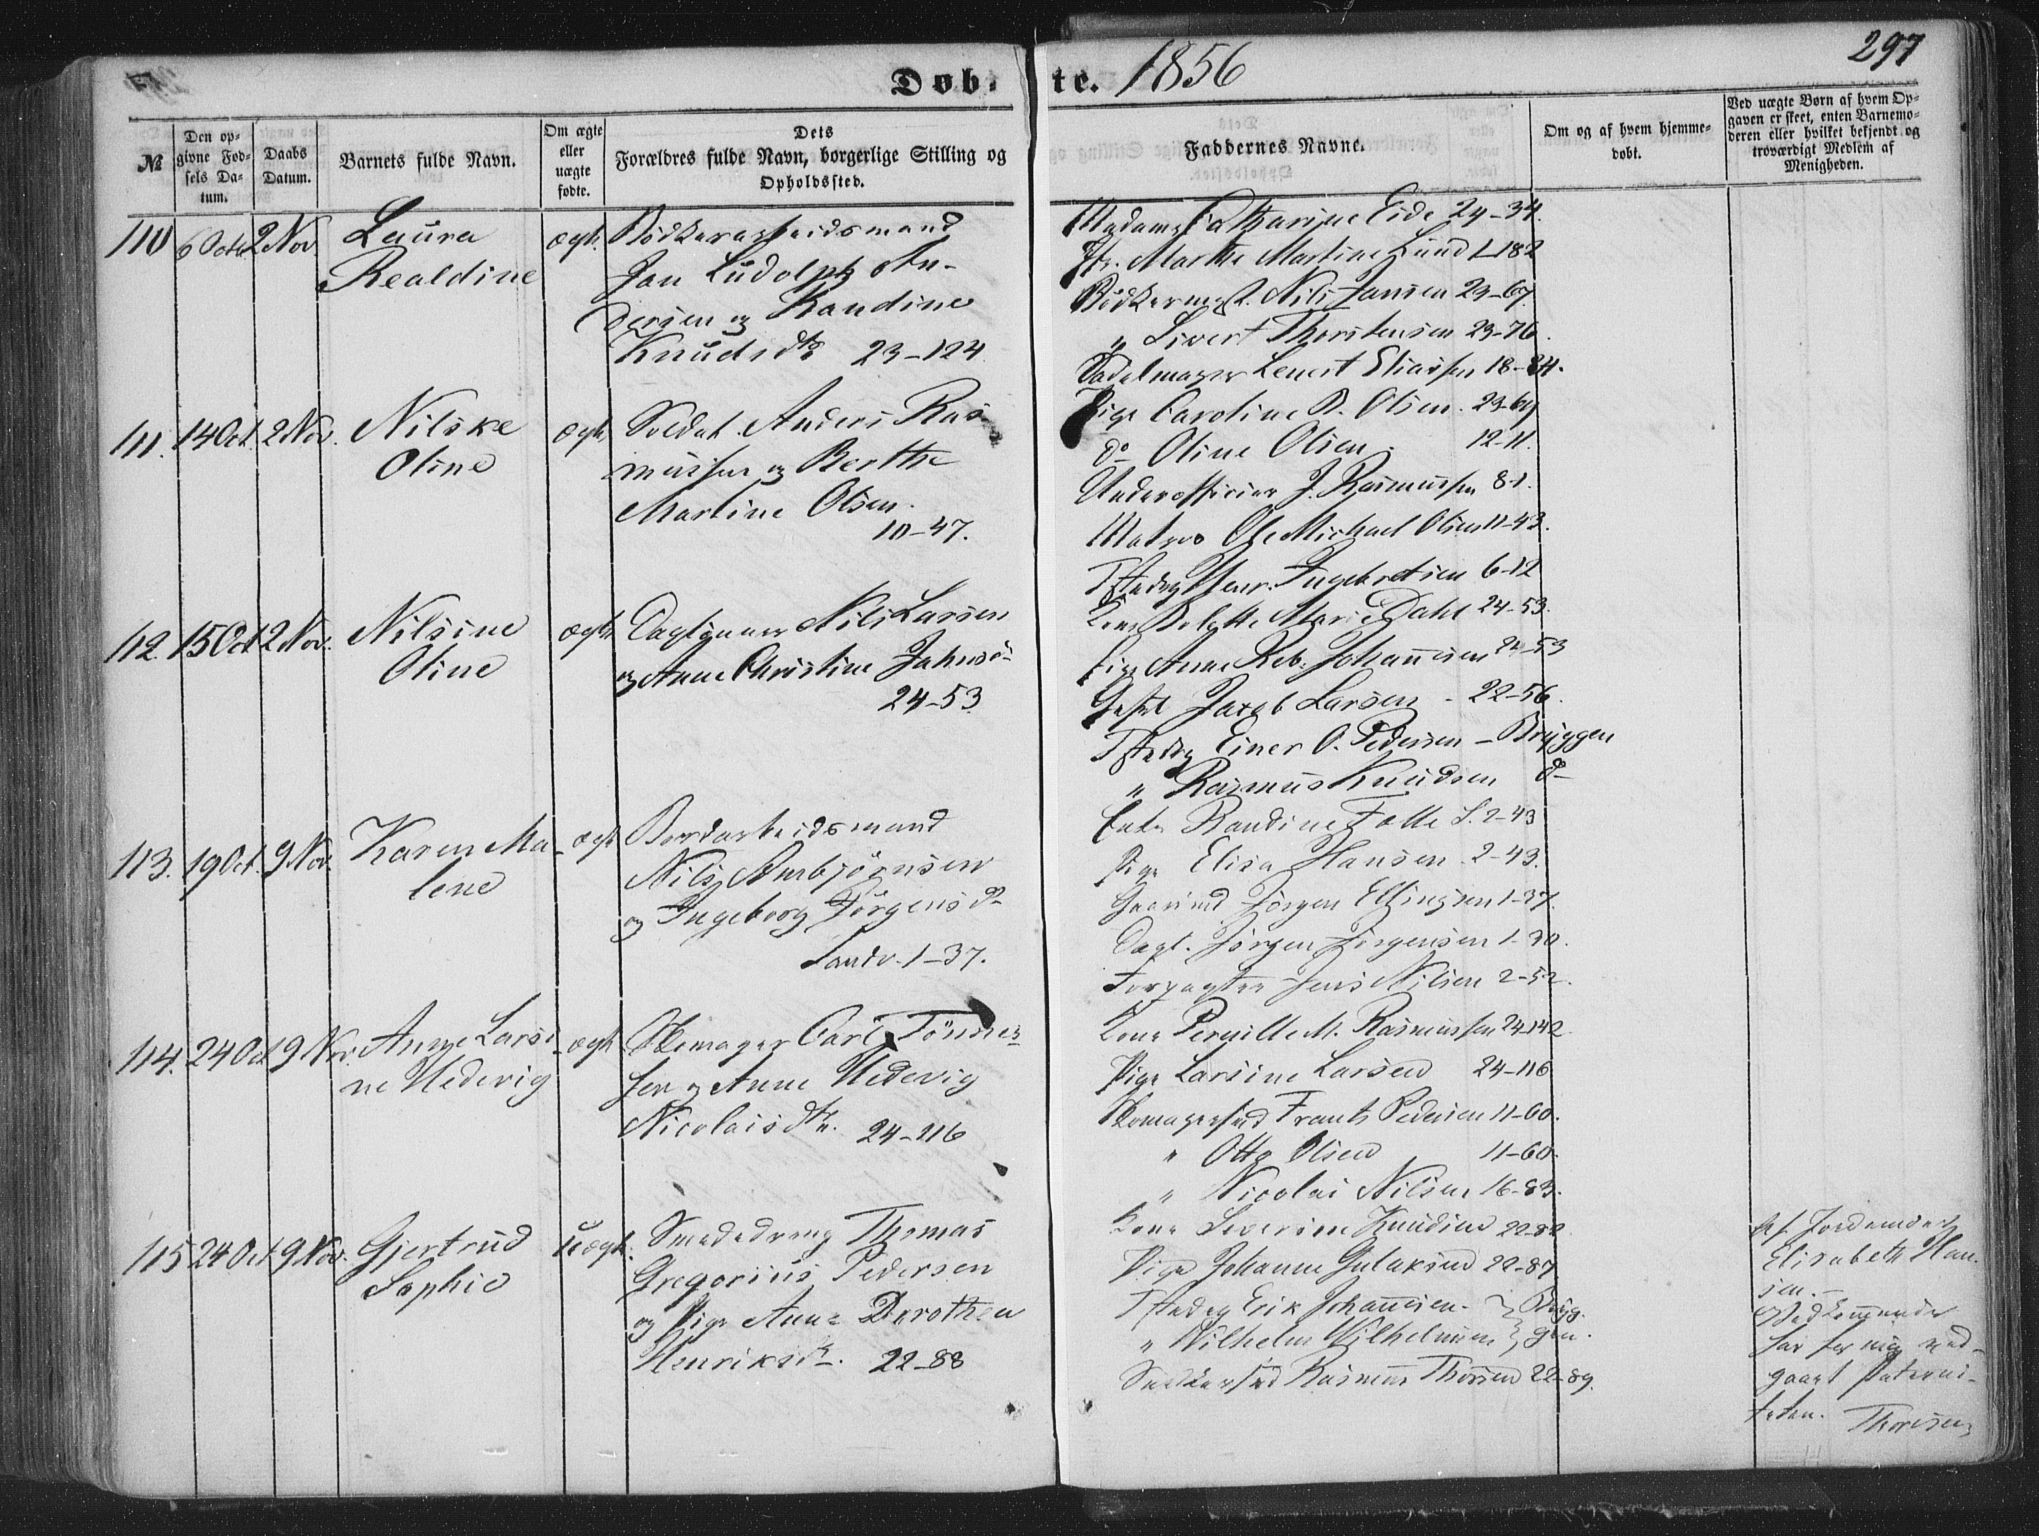 Døbte. 1856
297
№
Den opgivne Fødsels Datum.
Daabs Datum.
Barnets fulde Navn.
Om ægte eller uægte fødte.
Dets Forældres fulde Navn, borgerlige Stilling og Opholdssted.
Faddernes Navne.
Om og af hvem hjemmedøbt.
Ved uægte Børn af hvem Opgaven er skeet, enten Barnemoderen eller hvilket bekjendt og troværdigt Medlem af Menigheden.
110 6 Octr 2 Nov. Laura ægte Bødkerarbeidsmand
Realdine Jan Ludolph An-
dersen og Randine
Knudsdtr 23-124.
Madame Catharine Eide 24-34.
Marthe Martine Lund 1-182
Bødkermest. Nils Jansen 23-67.
" Sivert Thorstensen 23-76.
Sadelmager Lenert Eliassen 18-84.
111. 14 Oct. 2 Nov. Nilske ægte Soldat Anders Ras-
Oline mussen og Berthe
Martine Olsen.
10-47.
Pige Caroline B. Olsen. 23-69
do Oline Olsen. 12-11.
Underofficier J. Rasmussen 8-1.
Matros Ole Michael Olsen 11-43.
Ingebretsen 6-12
112. 15 Oct 2 Nov. Nilsine ægte Dagligner Nils Larsen
Oline og Anne Christine Jahns
24-53
Kone Marie Dahl 24-53.
Pige Anne Reb. Johannesen 24-53
Jacob Larsen - 22-56.
Einer O. Pedersen - Bryggen
" Rasmus Knudsen do
113. 19 Oct. 9 Nov. Karen Ma- ægte Bordarbeidsmand
lene Nils Anbjørnsen
og Ingeborg Jørgensd.
Sandv. 1-37.
Enke Randine Falle S. 2-43
Pige Elisa Hansen. 2-43.
Gaasmd Jørgen Ellingsen 1-37.
Dagl. Jørgen Jørgensen 1-30.
Forpagter Jens Nilsen 2-52.
114. 24 Oct 9 Nov. Anne Larsi- ægte Skomager Carl Tønne-
ne Hedevig sen og Anne Hedevig
Nicolaisdtr. 24-116
Kone Pernille M. Rasmussen 24-142.
Pige Larsine Larsen 24-116
Skomagersvd Frants Pedersen 11-60.
" Otto Olsen 11-60.
" Nicolai Nilsen 16-83.
115 24 Oct 9 Nov. Gjertrud uægte. Smededreng Thomas
Sophie Gregorius Pedersen
og Pige Anne Dorothea
Henriksd. 22-88
Kone Severine Knudsen 22-82.
Pige Johanne Gulaksen 22-87
Erik Johannesen. } Bryg-
" Wilhelm Wilhelmsen } gen.
Rasmus Thorsen 22-89.
Af Jordemoder
Elisabeth Han-
sen.-
Vedkommende
har for mig ved-
gaaet Paterni-
teten. Thoresen